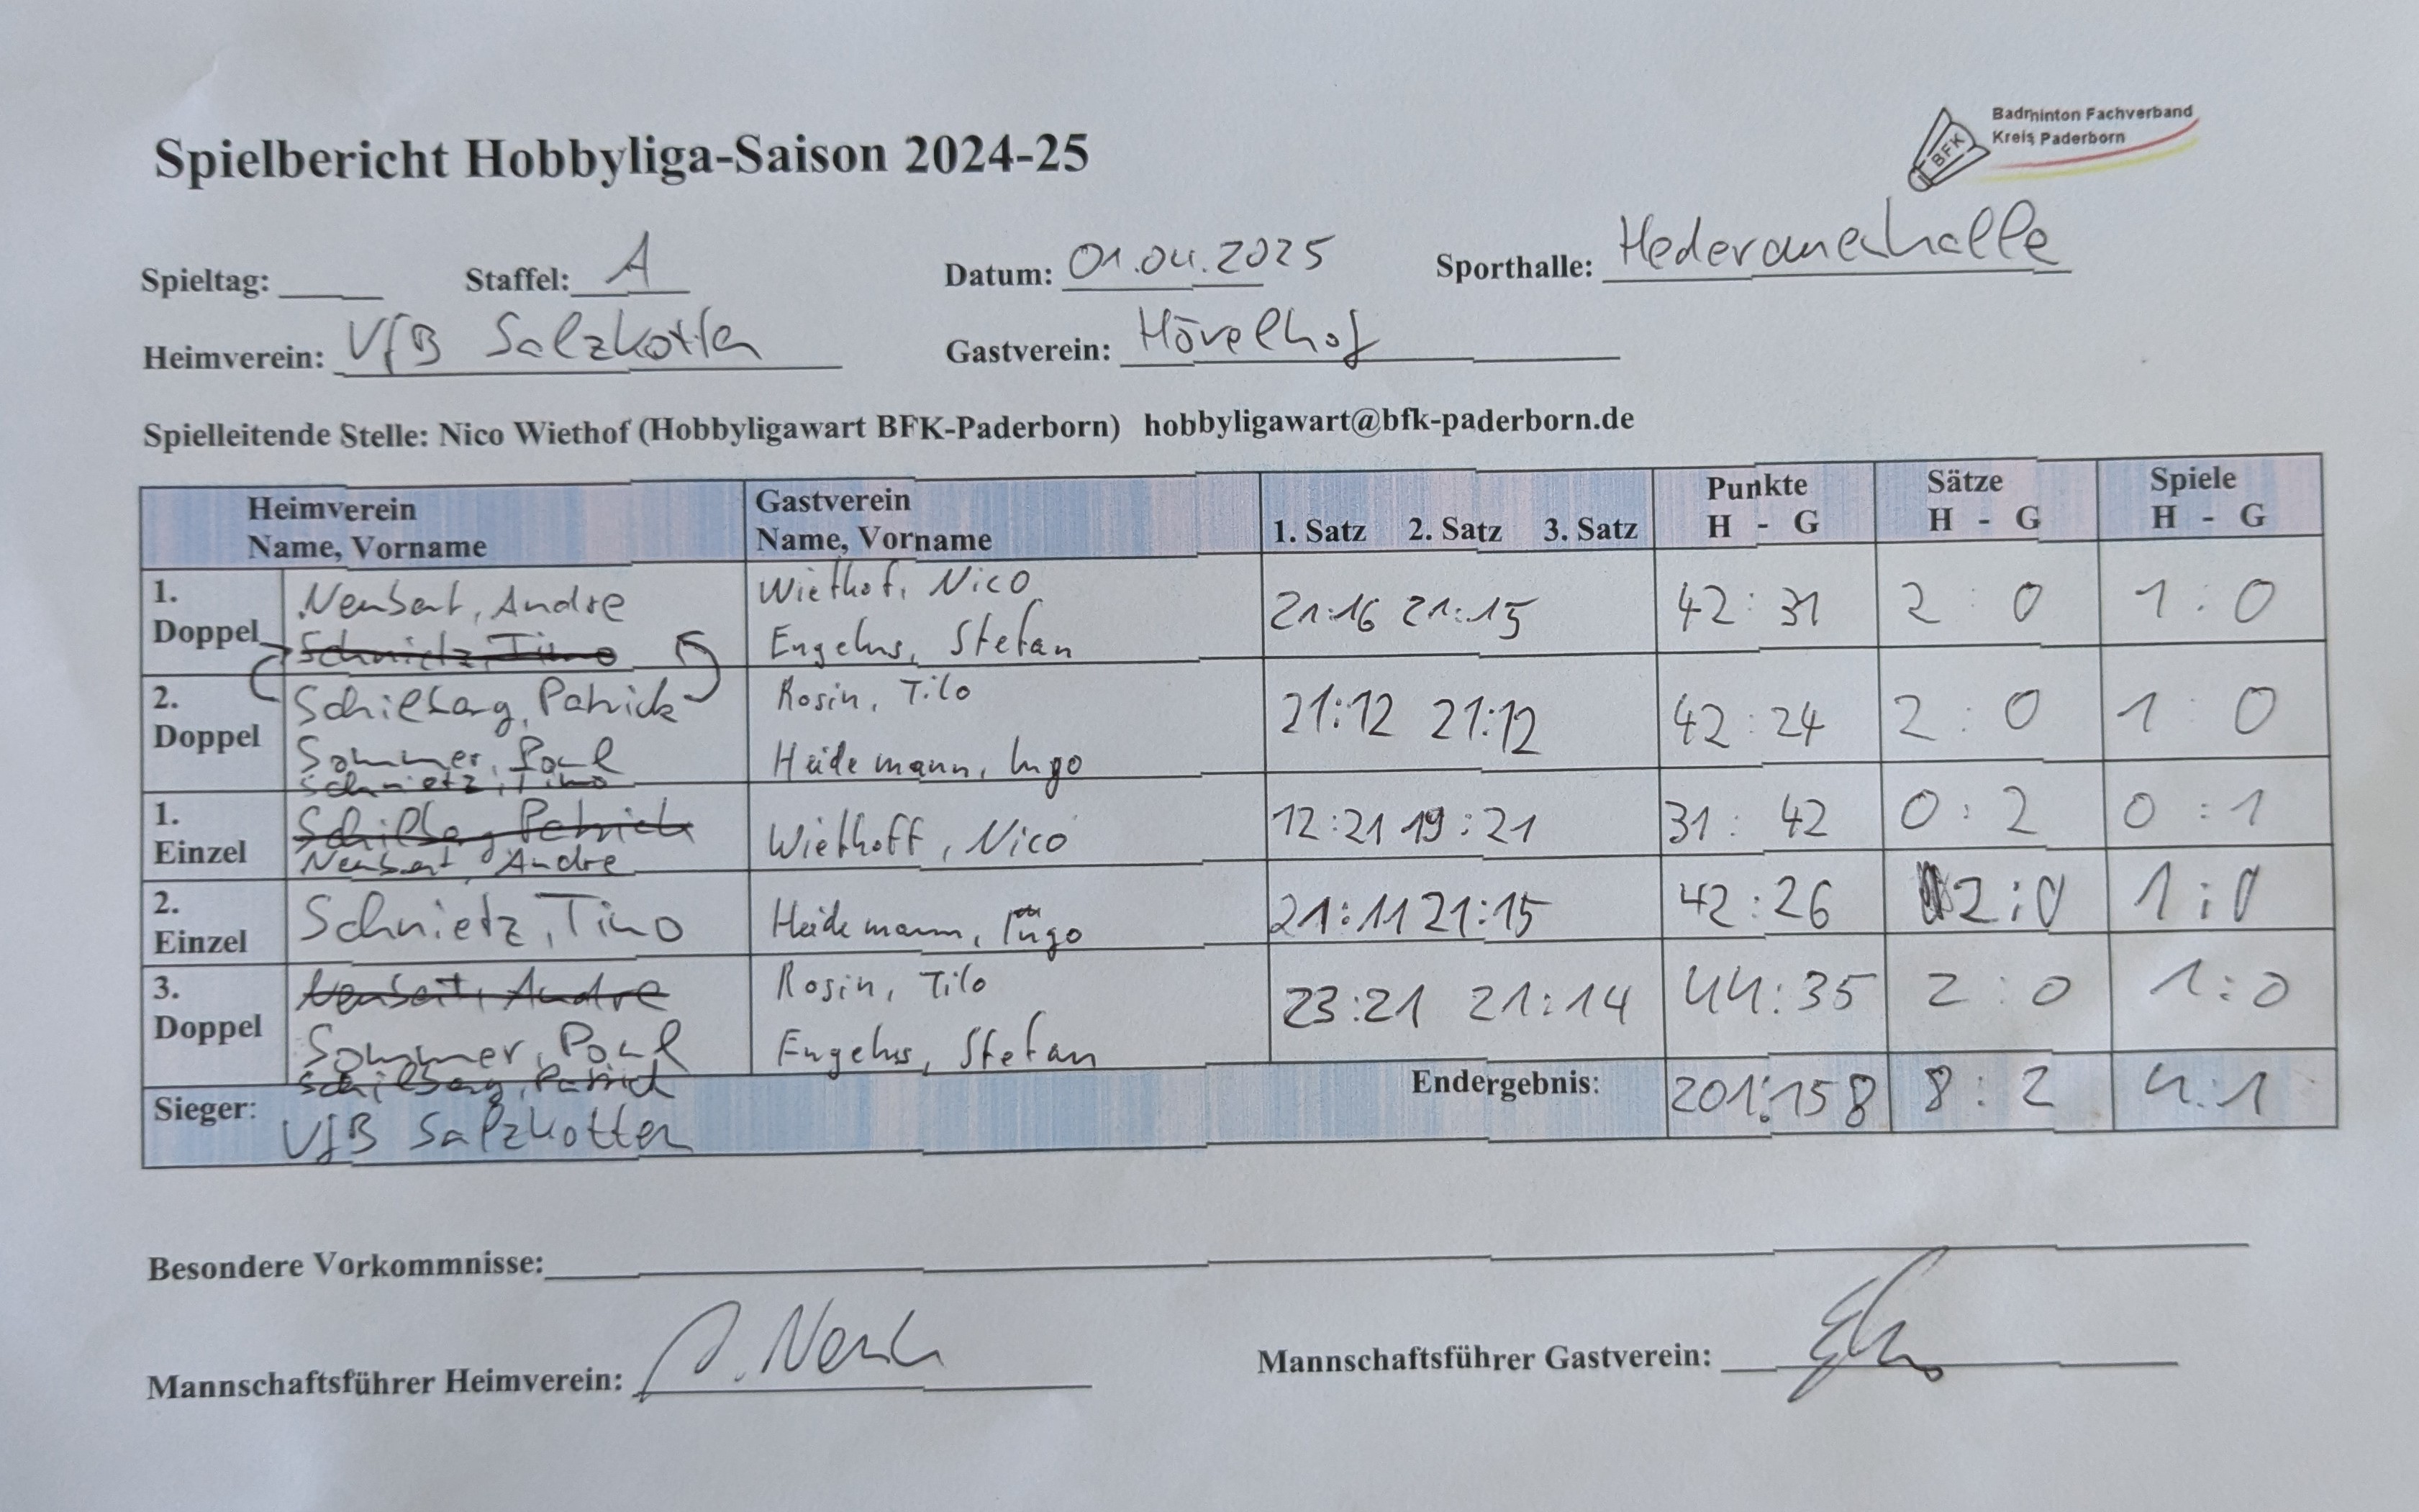 Spielbericht Hobbyliga-Saison 2024-25
BFK
Badminton Fachverband
Kreis Paderborn
Spieltag: Staffel: A Datum: 01.04.2025 Sporthalle: Hederauenhalle
Heimverein: VfB Salzkotten Gastverein: Hövelhof
Spielleitende Stelle: Nico Wiethof (Hobbyligawart BFK-Paderborn) hobbyligawart@bfk-paderborn.de
Heimverein Gastverein Punkte Sätze Spiele
Name, Vorname Name, Vorname 1. Satz 2. Satz 3. Satz H - G H - G H - G
1. Doppel Neubert, Andre Wiethof, Nico 21:16 21:15 42:31 2:0 1:0
Schnietz, Timo Engelns, Stefan
2. Doppel Schilberg, Patrick Rosin, Tilo 21:12 21:12 42:24 2:0 1:0
Sommer, Paul Heidemann, Ingo
Schnietz, Timo
1. Einzel Schilberg, Patrick Wiethoff, Nico 12:21 19:21 31:42 0:2 0:1
Neubert, Andre
2. Einzel Schnietz, Timo Heidemann, Ingo 21:11 21:15 42:26 2:0 1:0
3. Doppel Neubert, Andre Rosin, Tilo 23:21 21:14 44:35 2:0 1:0
Sommer, Paul Engelns, Stefan
Schilberg, Patrick
Sieger: VfB Salzkotten Endergebnis: 201:158 8:2 4:1
Besondere Vorkommnisse:
Mannschaftsführer Heimverein: Mannschaftsführer Gastverein: